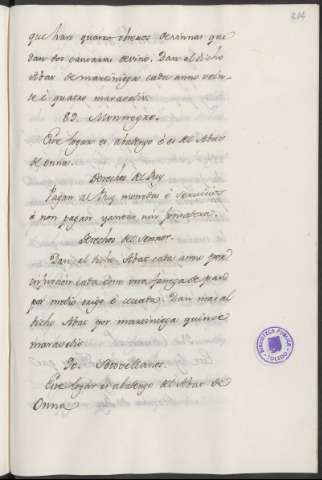 214
que haya quatro obreros de vinnar que
dan dos cantaras de vino. Dan al dicho
Abat de marciniega cada anno vein-
te é quatro maravedis.
89. Montnegro.
Este logar es abadengo é es del Abat
de onna.
Derechos del Rey
Pagan al Rey monedas é servicios
é non pagan yantar nin fonsadera.
Derechos del sennor.
Dan al dicho Abat cada anno por
infurcion cada uno una fanega de pan
por medio trigo é cevada. Dan mas al
dicho Abat por marciniega quince
maravedis.
90.
Este logar es abadengo del Abat de
Onna
BIBLIOTECA PUBLICA
TOLEDO